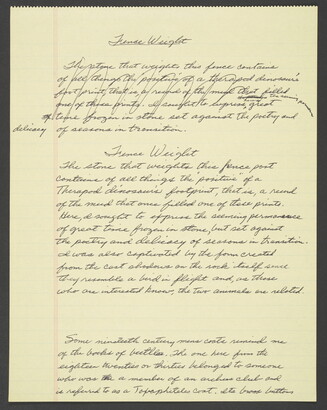 Fence Weight
The stone that weights this fence contains
of all things the "positive" of a therapod dinosaur's
foot print, that is, a record of the mud that filled
one of those prints. I sought to express great
of time frozen in stone set against the poetry and
delicacy
of seasons in transition.
Fence Weight
The stone that weights this fence post
contains of all things the "positive" of a
Therapod dinosaur's footprint, that is, a record
of the mud that once filled one of these prints.
Here, I sought to express the seeming permanence
of great time frozen in stone, but set against
the poetry and delicacy of seasons in transition.
I was also captivated by the form created
from the cast shadows on the rock itself since
they resemble a bird in flight and, as those
who are interested know, the two animals are related.
Some nineteenth century mens coats remind me
of the backs of beetles. The one here from the
eighteen twenties or thirties belonged to someone
who was a member of an archers club and
is referred to as a Toxophilites coat, its brass buttons